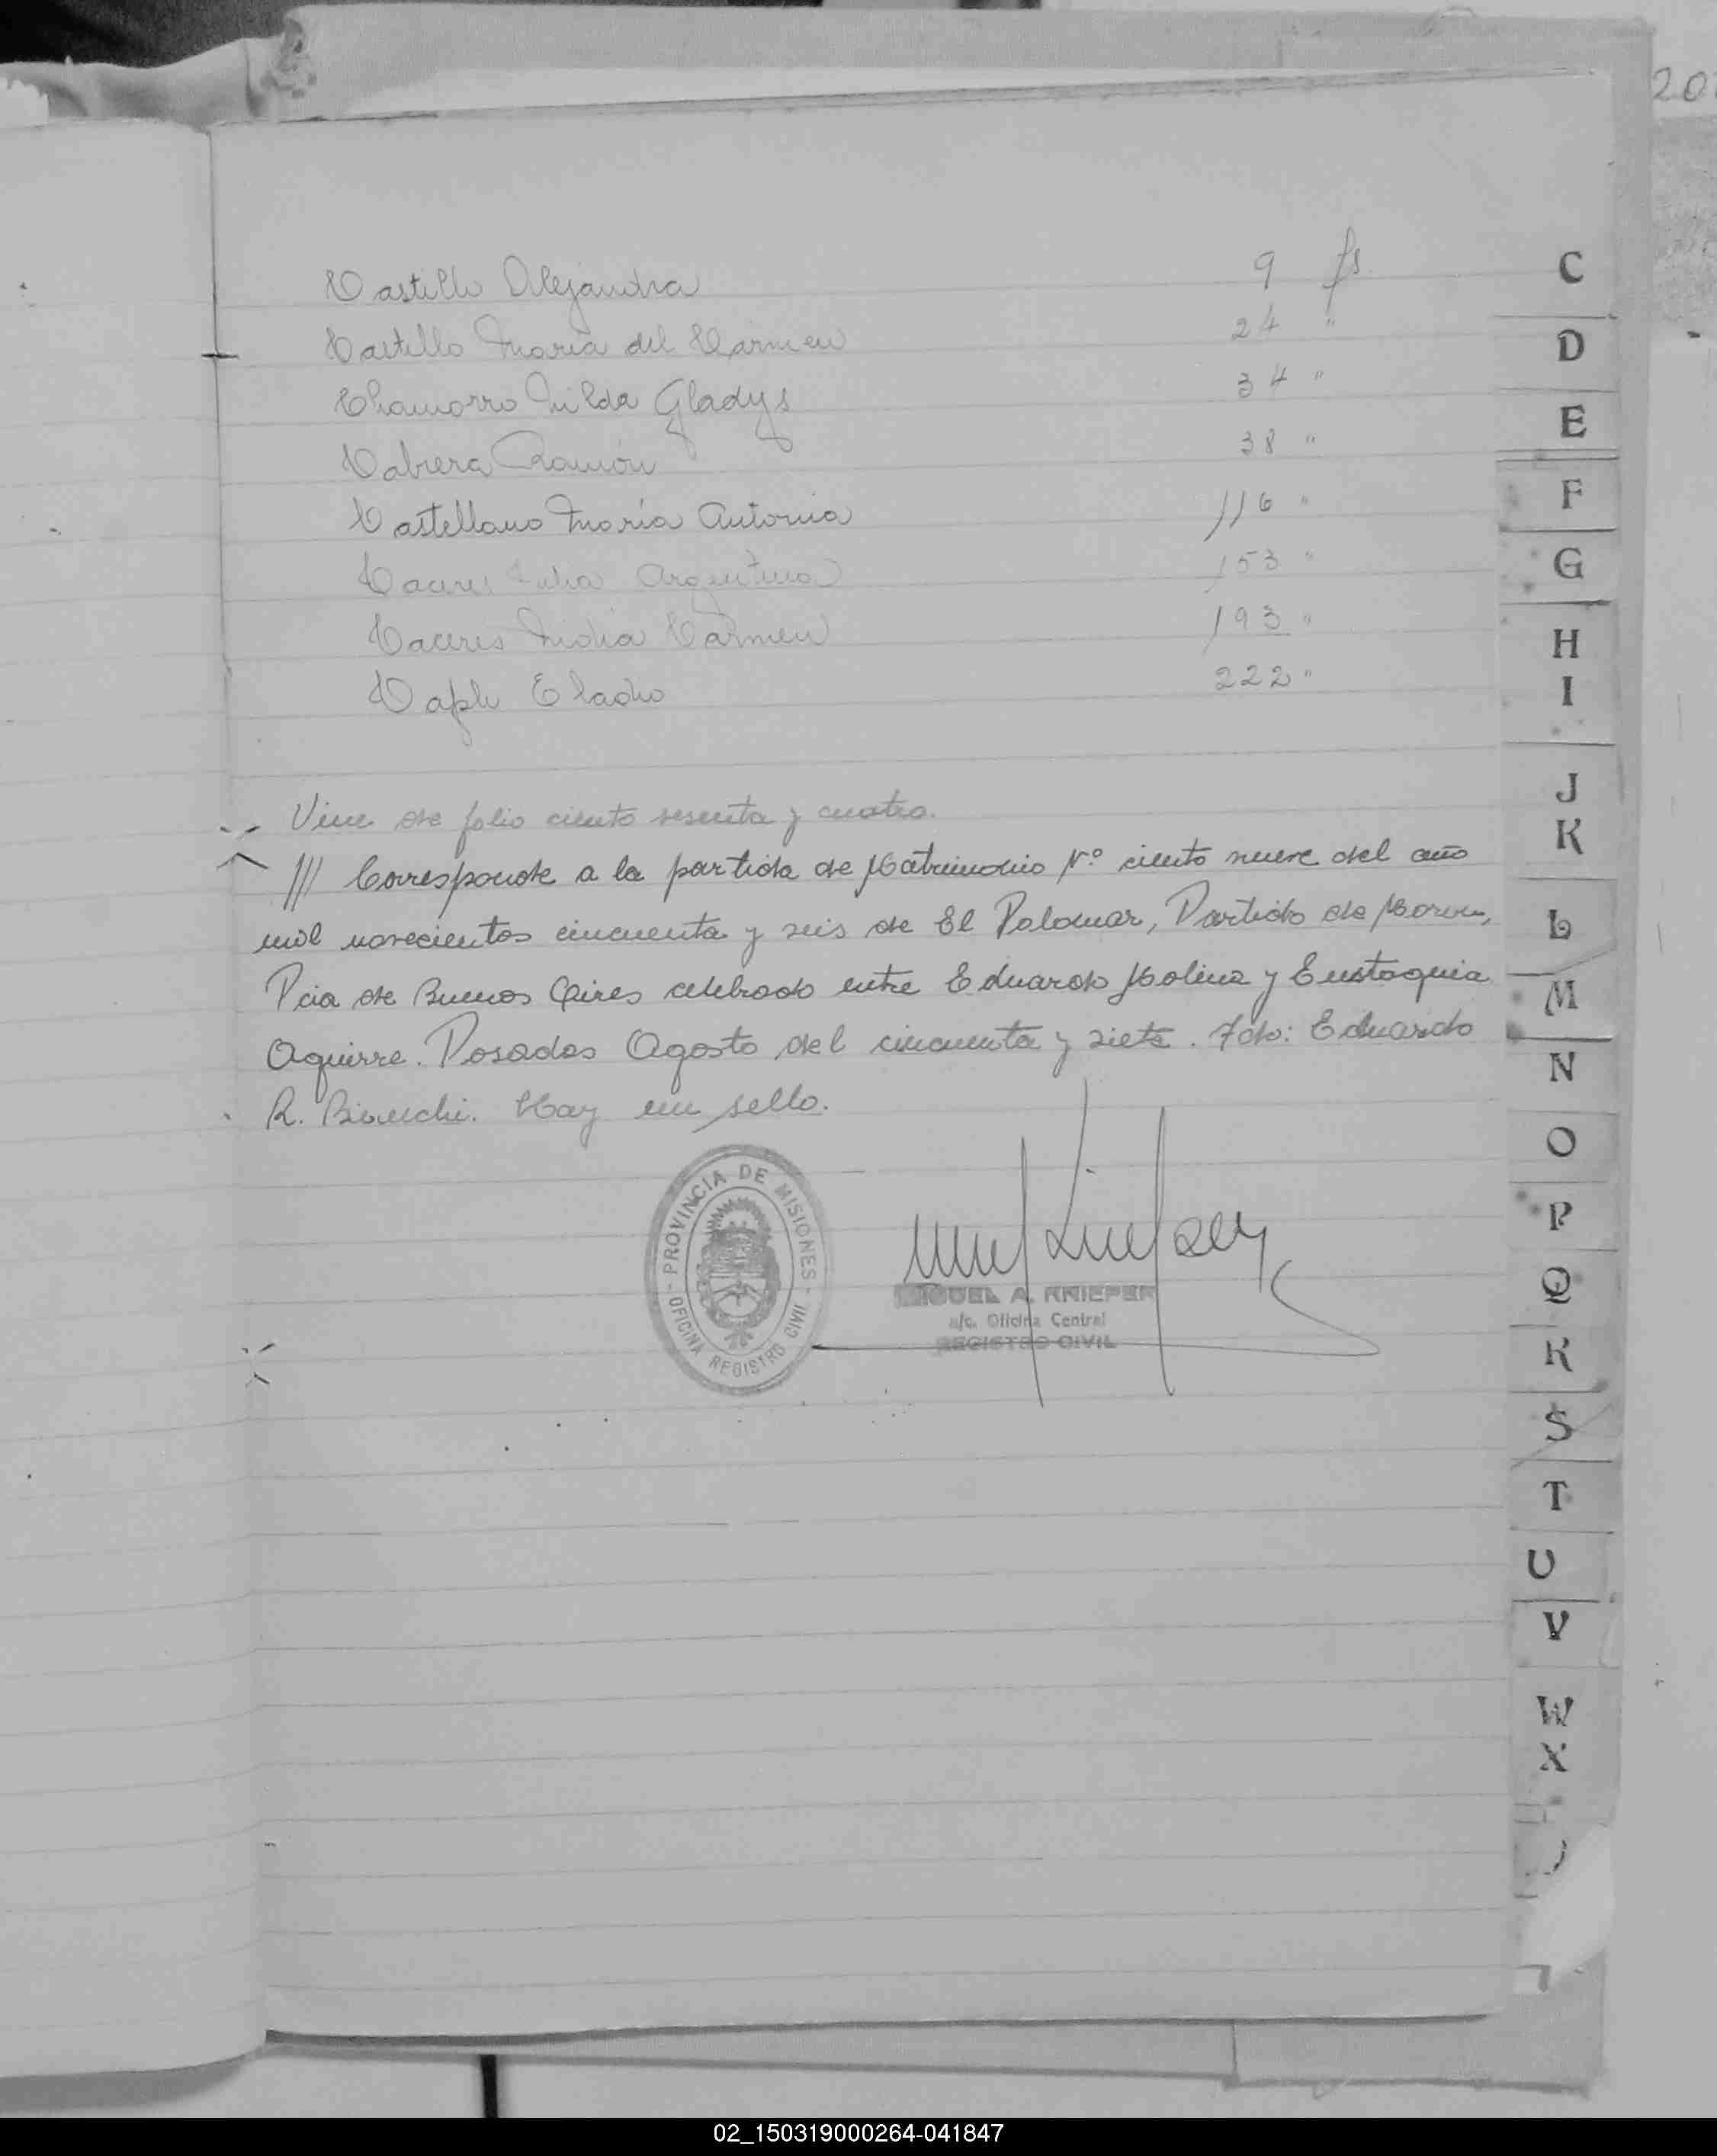 20
Castillo Alejandra 9 fs.
Castillo María del Carmen 24 "
Chamorro Nilda Gladys 34 "
Cabrera Ramón 38 "
Castellano María Antonia 116 "
Caceres Argentina 153 "
Caceres Nidia Carmen 193 "
Eladio 222 "
Viene de folio ciento sesenta y cuatro.
/// Corresponde a la partida de Matrimonio Nº ciento nueve del año
mil novecientos cincuenta y seis de El Palomar, Partido de Moron,
Pcia de Buenos Aires celebrado entre Eduardo Molina y Eustaquia
Aguirre. Posadas Agosto del cincuenta y siete. Fdo: Eduardo
R. Bianchi. Hay un sello.
PROVINCIA DE MISIONES
OFICINA REGISTRO CIVIL
MIGUEL A. KNIEPER
a/c. Oficina Central
REGISTRO CIVIL
C
D
E
F
G
H
I
J
K
L
M
N
O
P
Q
R
S
T
U
V
W
X
02_150319000264-041847